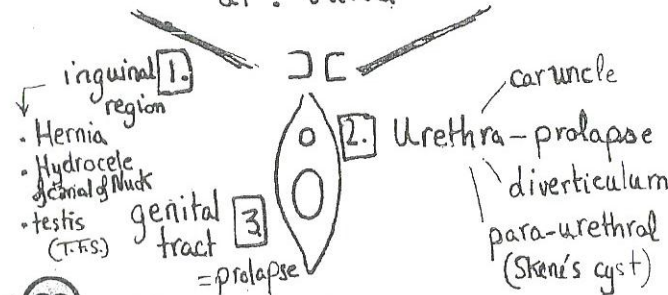 inguinal 1.
region
• Hernia
• Hydrocele
of canal of Nuck
• testis
(T.F.S.)
2. Urethra - prolapse
caruncle
diverticulum
para-urethral
(Skene's cyst)
genital 3.
tract
= prolapse